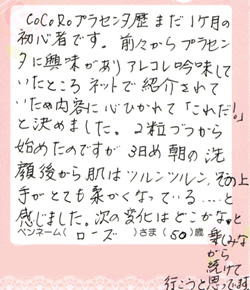 CoCoRoプラセンタ歴まだ1ケ月の
初心者です。前々からプラセン
タに興味がありアレコレ吟味して
いたところネットで紹介されて
いた内容に心ひかれて「これだ!」
と決めました。2粒づつから
始めたのですが3日め朝の洗
顔後から肌はツルンツルン、その上
手がとても柔かくなっている……と
感じました。次の変化はどこかな。と
ペンネーム( ローズ )さま(50)歳
楽しみな
がら
続けて
行こうと思ってます